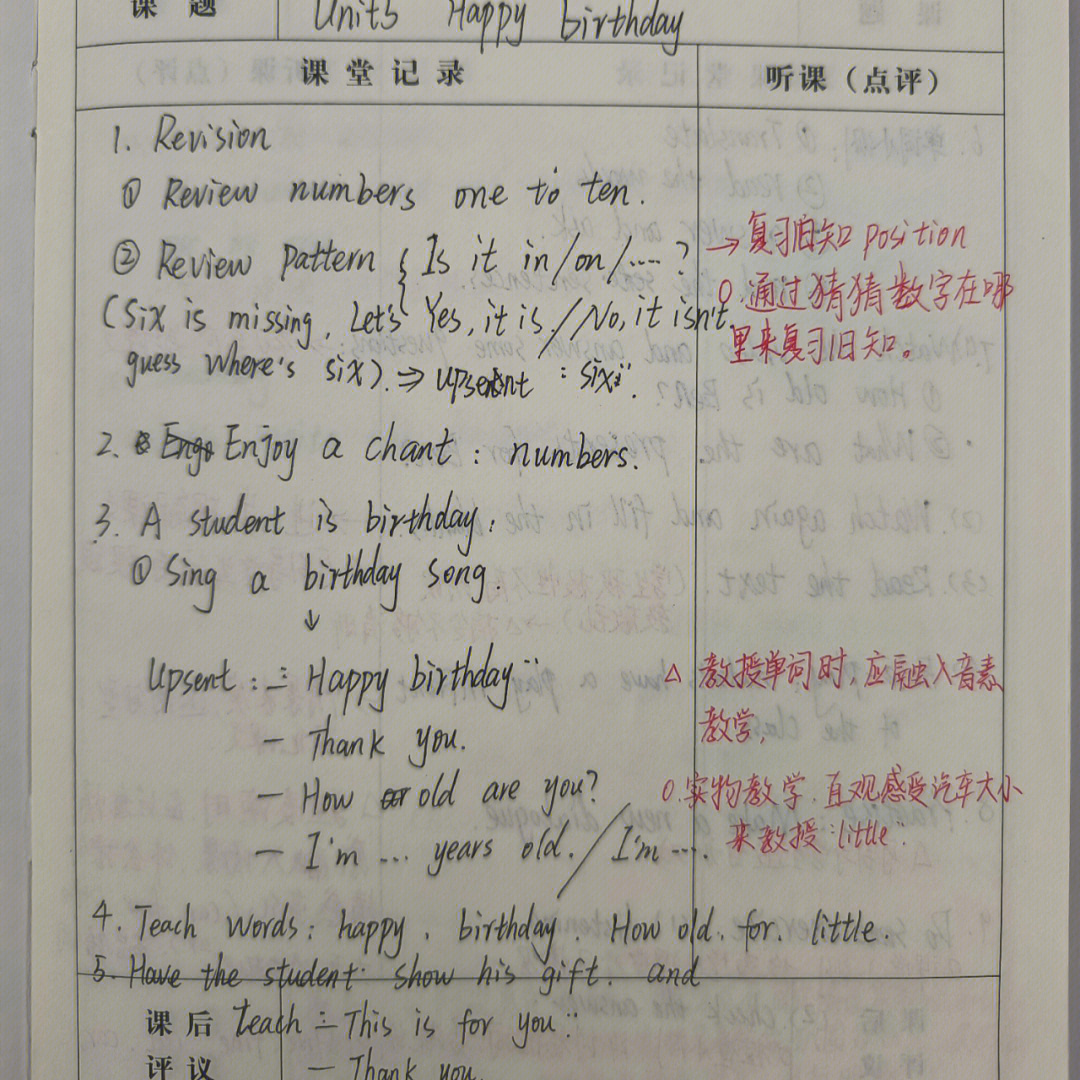 课 题 Unit5 Happy birthday
课 堂 记 录 听课（点评）
1. Revision
① Review numbers one to ten.
② Review pattern { Is it in/on/....? → 复习旧知 position
(Six is missing. Let's Yes, it is./No, it isn't. O.通过猜猜数字在哪
guess where's six). ⇒ Upsent : six". 里来复习旧知。
2. Enjoy a chant : numbers.
3. A student is birthday:
① Sing a birthday song.
↓
Upsent : "– Happy birthday" △ 教授单词时，应融入音素
– Thank you. 教学，
– How old are you? O.实物教学.直观感受汽车大小
– I'm ... years old./I'm .... 来教授"little".
4. Teach words: happy. birthday. How old. for. little.
5. Have the student show his gift. and
课 后 teach "– This is for you"
评 议 – Thank you.